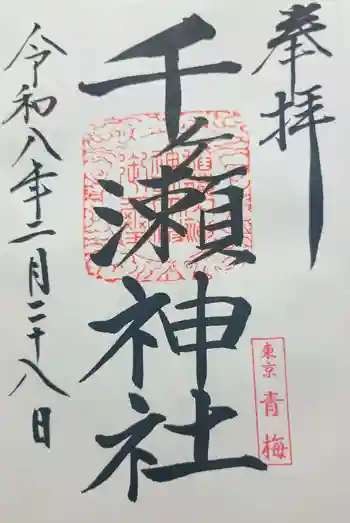 奉拝
千ヶ瀬神社
東京 青梅
令和八年二月二十八日